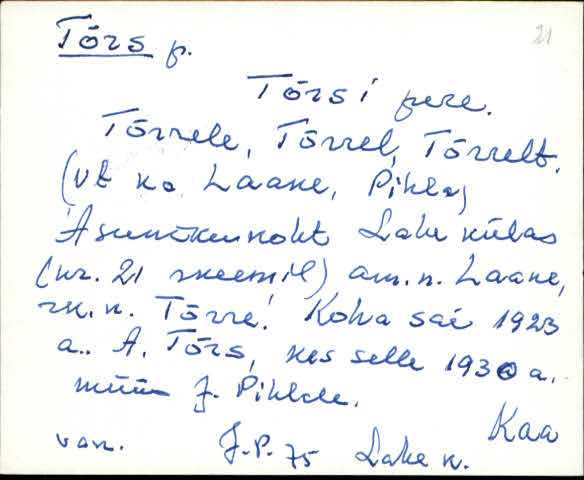 Tõrs p. 21
Tõrsi pere.
Tõrrele, Tõrrel, Tõrrelt.
(vt ka Laane, Pihla)
Asunikukoht Lahe külas
(nr. 21 skeemil) am. n. Laane,
rk. n. Tõrre. Koha sai 1923
a. A. Tõrs, kes selle 1930 a.
müüs J. Pihlale.
Kaa
van. J.P. 75 Lahe k.